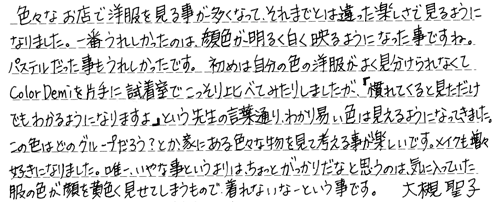 色々なお店で洋服を見る事が多くなって、それまでとは違った楽しさで見るように
なりました。一番うれしかったのは、顔色が明るく白く映るようになった事ですね。
パステルだった事もうれしかったです。初めは自分の色の洋服がよく見分けられなくて
ColorDemiを片手に試着室でこっそり比べてみたりしましたが、「慣れてくると見ただけ
でもわかるようになりますよ」という先生の言葉通り、わかり易い色は見えるようになってきました。
この色はどのグループだろう？とか、家にある色々な物を見て考える事が楽しいです。メイクも増々
好きになりました。唯一、いやな事というよりは、ちょっとがっかりだなと思うのは、気に入っていた
服の色が顔を黄色く見せてしまうもので、着れないなーという事です。 大槻 聖子